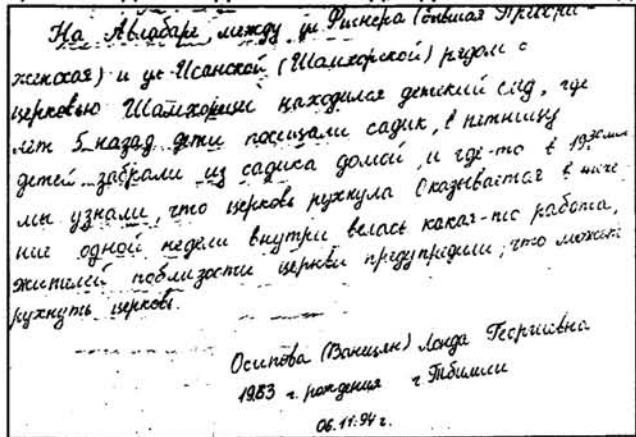 На Авлабаре, между ул. Фиснера (бывшая Прихри-
женская) и ул. Исанской (Шамхорской) рядом с
церковью Шамхорецц находился детский сад, где
лет 5 назад дети посещали садик, в пятницу
детей забрали из садика домой, и где-то в 19
мы узнали, что церковь рухнула. Оказывается в тече
ние одной недели внутри велась какая-то работа,
жителей поблизости церкви предупредили, что может
рухнуть церковь.
Осипова (Ванцян) Лонда Георгиевна
1983 г. рождения г. Тбилиси
06.11.94 г.